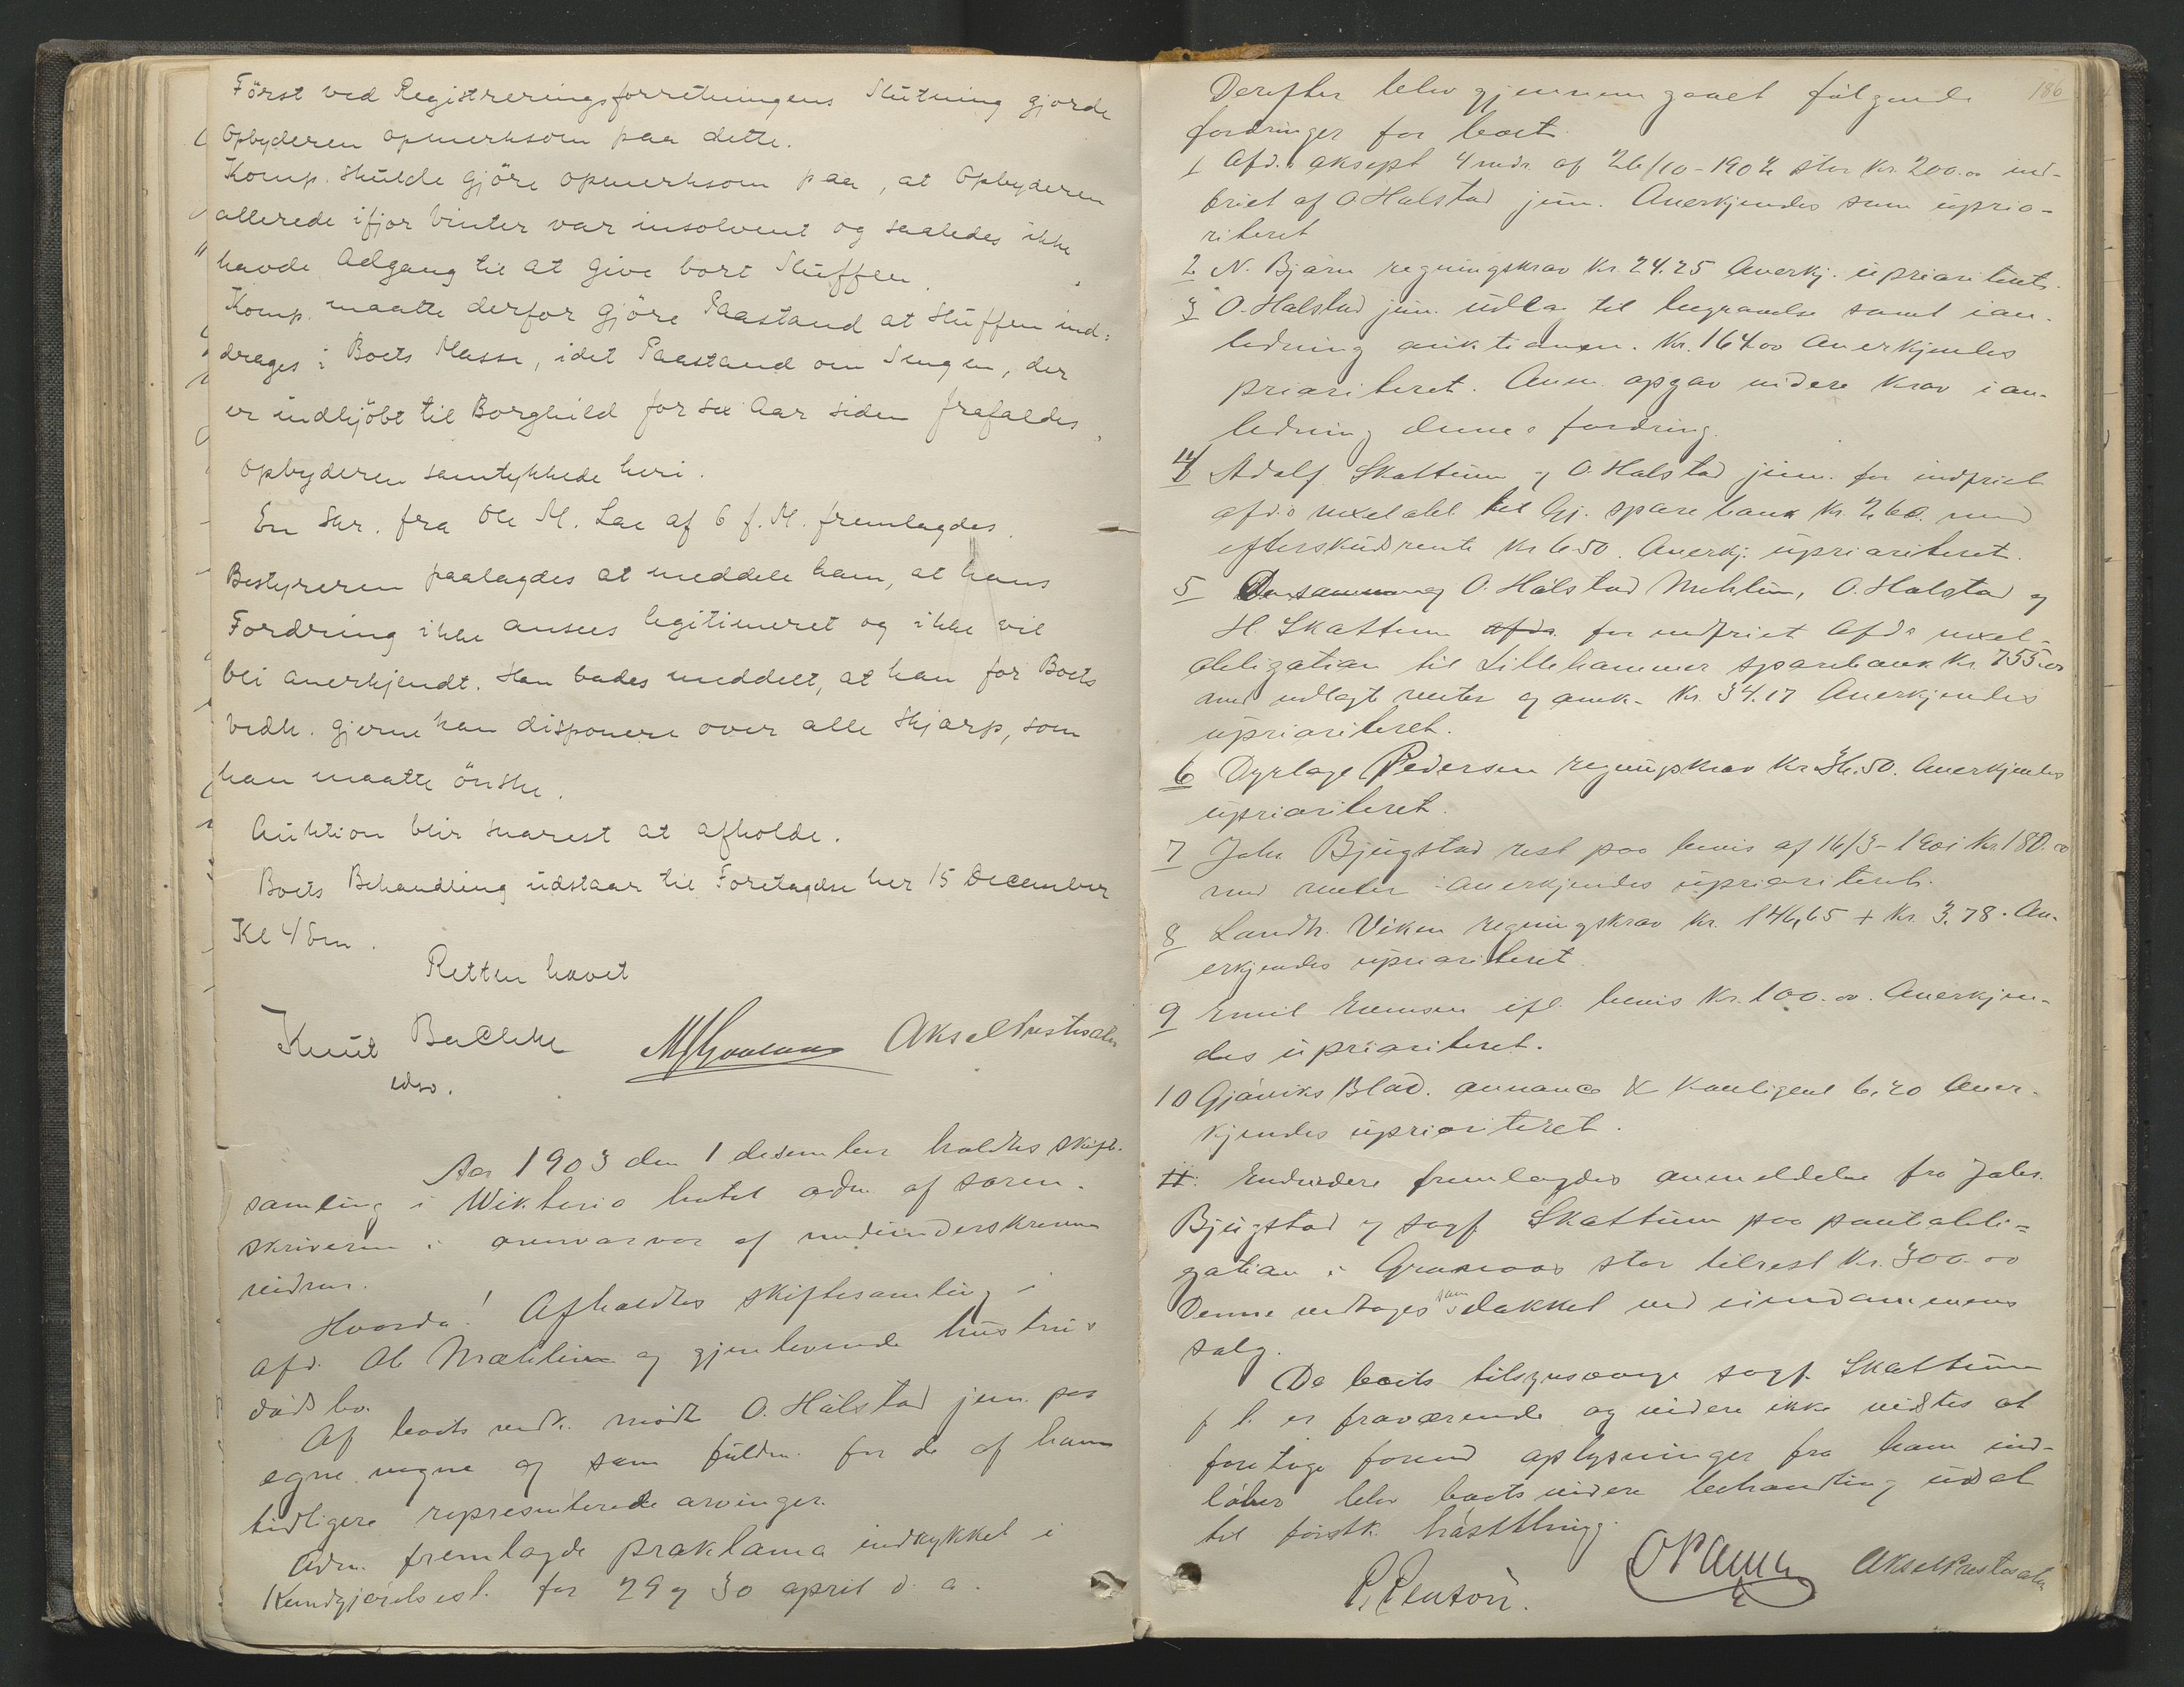 Först ved Registreringsforretningens Slutning gjorde
Opbyderen opmerksom paa dette.
Komp. skulde gjöre opmerksom paa, at Opbyderen
allerede ifjor Vinter var insolvent og saaledes ikke
havde Adgang til at give bort Sluffen.
Komp. maatte derfor gjöre Paastand at Sluffen ind-
drages i Boets Masse, idet Paastand om Sengen, der
er indkjöbt til Borghild for sex Aar siden frafaldes.
Opbyderen samtykkede heri.
En Skr. fra Ole M. Lae af 6 f. M. fremlagdes.
Bestyreren paalagdes at meddele ham, at hans
Fordring ikke ansees legitimeret og ikke vil
bli anerkjendt. Han bades meddelt, at han for Boets
vedk. gjerne kan disponere over alle Skjærp, som
han maatte önske.
Auktion blir snarest at afholde.
Boets Behandling udstaar til Foretagelse her 15 December
Kl 4 Em.
Retten hævet
Knut Bachke
Aksel Prestesæter
edsv.
Aar 1903 den 1 desember holdtes skifte-
samling i Wiktoria hotel adm af soren-
skriveren i overvær af medunderskrevne
vidner.
Hvorda! Afholdtes skiftesamling i
afd. Ole Mæhlum og gjenlevende hustrus
dödsbo.
Af boets vedk. mödte O. Hålstad jun. paa
egne vegne og som fuldm. for de af ham
tidligere representerede arvinger.
Adm. fremlagde proklama indrykket i
Kundgjörelsest. for 29 og 30 april d. a.
186
Derefter blev gjennemgaaet fölgende
fordringer for boet.
1 Afd.s aksept 4 mdr. af 26/10-1902 stor Kr. 200.00 ind-
friet af O Halstad jun. Anerkjendes som uprio-
riteret
2 N. Bjørn regningskrav Kr. 24.25 Anerkj. uprioritert.
3 O. Halstad jun. udlæg til begravelse samt i an-
ledning auktionen. Kr. 164.00 Anerkjendes
prioriteret. Anm. opgav videre krav i an-
ledning denne fordring.
4 Adolf Skattum og O. Halstad jun. for indfriet
afd.s vexelobl. til Gj. sparebank Kr. 260. med
efterskudsrente Kr 6.50. Anerkj. uprioriteret.
5 O. Hålstad Mehlum, O. Halstad og
H. Skattum afds. for indfriet Afds vexel-
obligation til Lillehammer sparebank Kr. 755.00
med udlagt renter og omk. Kr. 34.17 Anerkjendes
uprioriteret.
6 Dyrlæge Pedersen regningskrav Kr 36.50. Anerkjendes
uprioriteret.
7 Johs. Bjugstad rest paa bevis af 16/3-1901 Kr. 180.00
med renter anerkjendes uprioriteret.
8 Landh. Viken regningskrav Kr. 146,65 + Kr. 3.78. An-
erkjendes uprioriteret
9 Emil Evensen ifl. bevis Kr. 100.00. Anerkjen-
des uprioriteret.
10 Gjöviks Blad. annonce & kontigent 6,20 Aner-
kjendes uprioriteret.
11. Endvidere fremlagdes anmeldelse fra Johs.
Bjugstad og sagf. Skattum paa pantobli-
gation i stor tilrest Kr. 300.00
Denne vedtoges som dækket ved eiendommens
salg.
Da boets tilsynsmand sagf. Skattum
f. t. er fraværende og videre ikke vidstes at
foretage forend oplysninger fra ham ind-
löber blev boets videre behandling udsat
til förstk. hösttthing.
Aksel Prestesæter